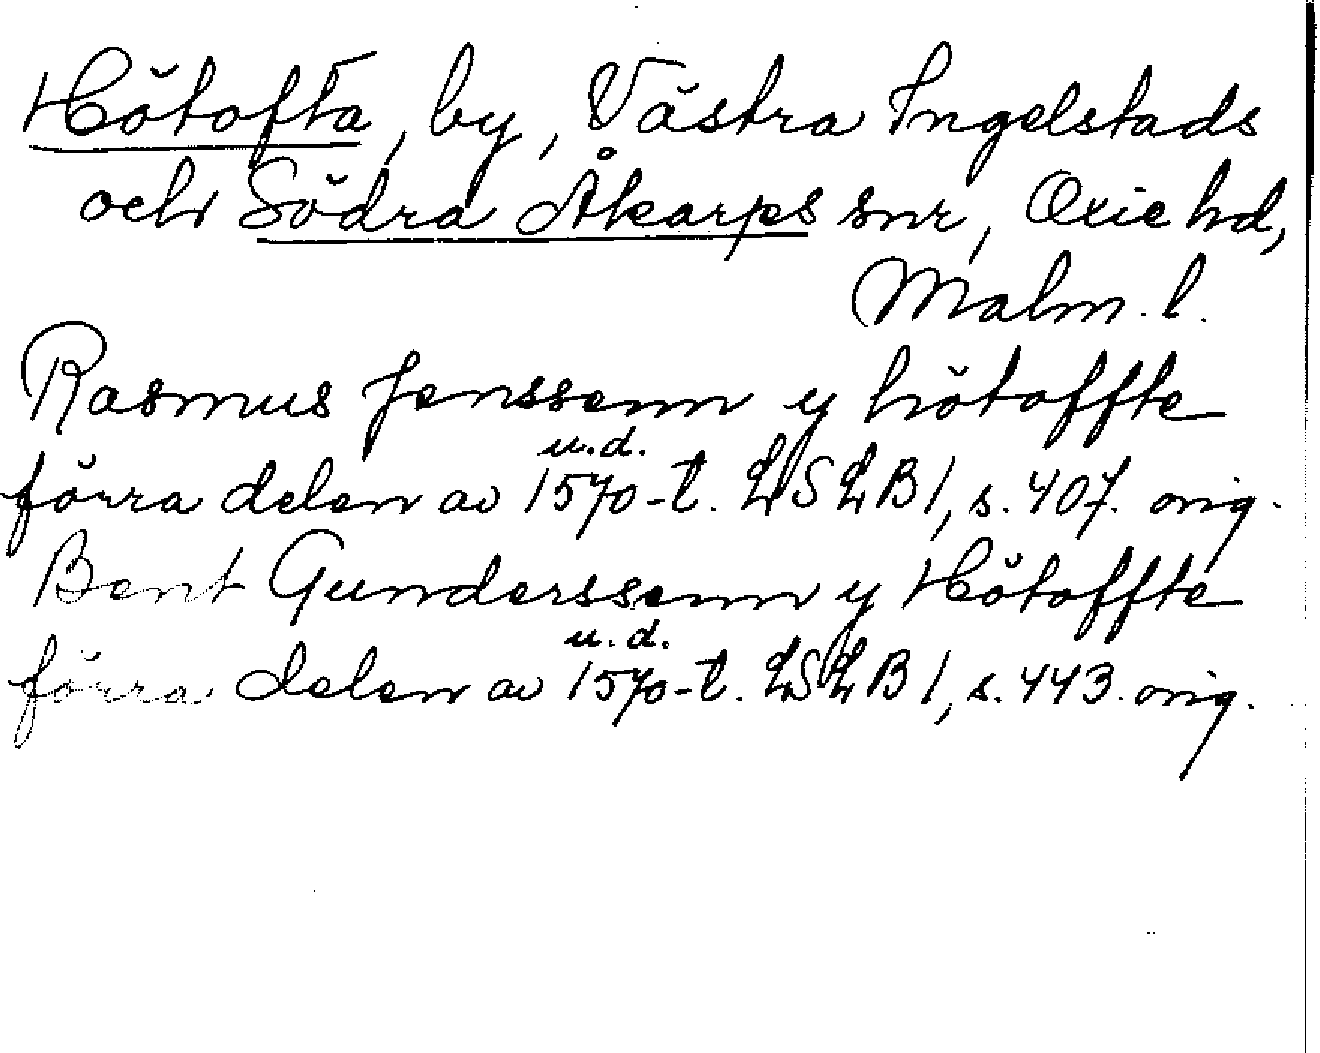 Hötofta, by, Västra Ingelstads
och Södra Åkarps snr, Oxie hd,
Malm. l.
Rasmus Jenssenn y hötoffte
u.d.
förra delen av 1570-t. LSLB 1, s. 407. orig.
Bent Gunderssenn y Hötoffte
u.d.
förra delen av 1570-t. LSLB 1, s. 443. orig.